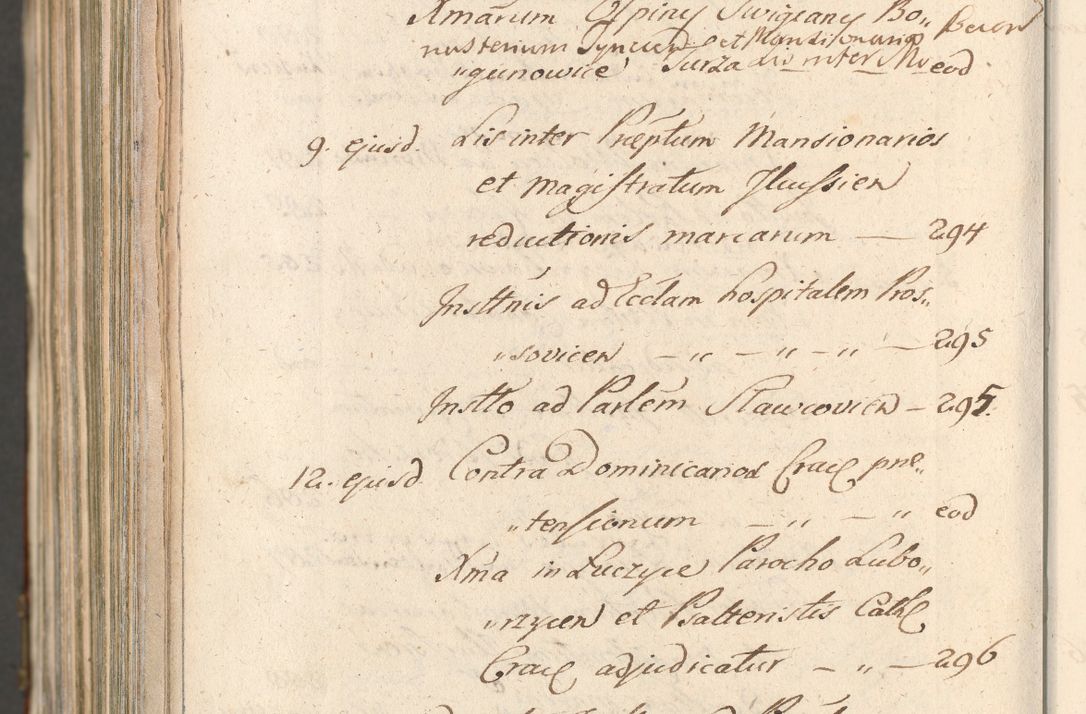 Xmarum Ospiny Swigeany Bo„
nasterium Tyneien et Mansionarios Becen
„gunowice Turza Lis inter Mo eod
9. ejusd. Lis inter Præptum Mansionarios
et Magistratum Ilkussien
reductionis marcarum — 294
Insttnis ad Ecclam hospitalem Pros„
„sovicen — „ — „ — „ — 295
Instto ad Parlem Slawcovien — 295.
12. ejusd. Contra Dominicanos Crac præ„
„tensionum — „ — „ eod
Xma in Luczyce Parocho Lubo„
„rzycen et Psalteristis Cath
Crac adjudicatur — „ — 296